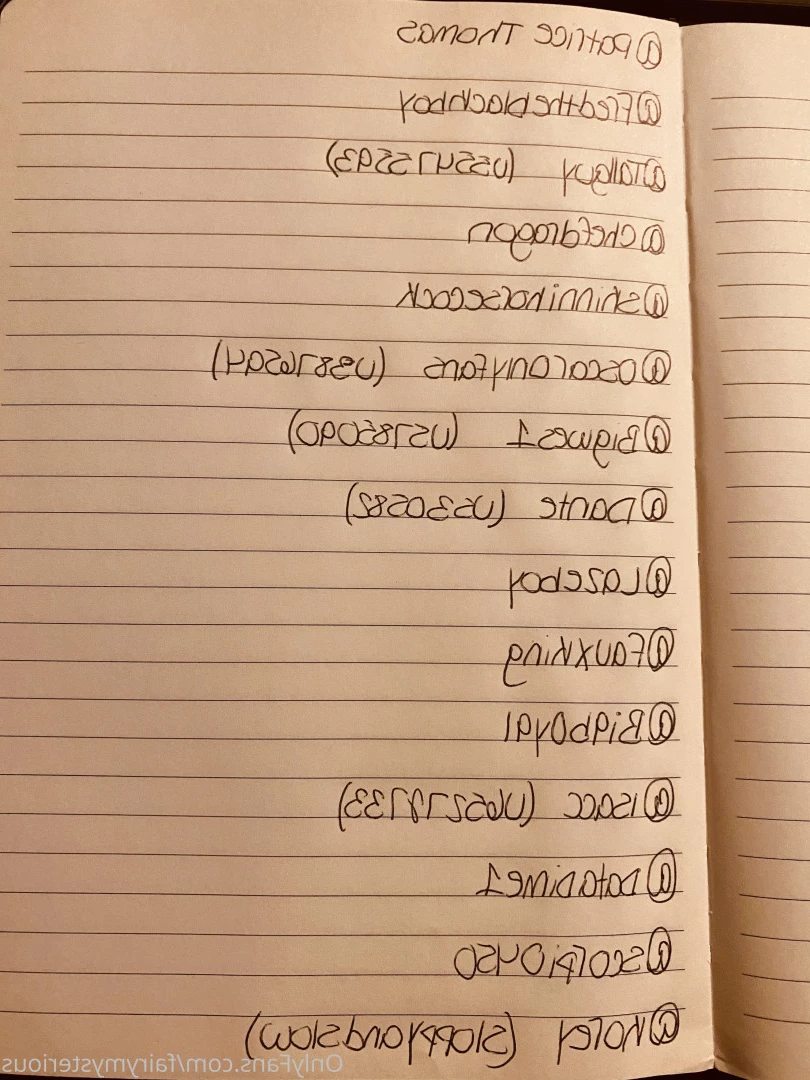 @patrice Thomas
@Fredtheblackboy
@Tallguy (U55475593)
@chefdragon
@skinnihorsecock
@oscaronlyfans (U3876504)
@Bigwes1 (U5785090)
@Dante (U530582)
@Lazeboy
@Fauxking
@BigbOyal
@isacc (U65278733)
@Datadime1
@scorpio450
@Korey (slappyandslow)
OnlyFans.com/fairymysterious